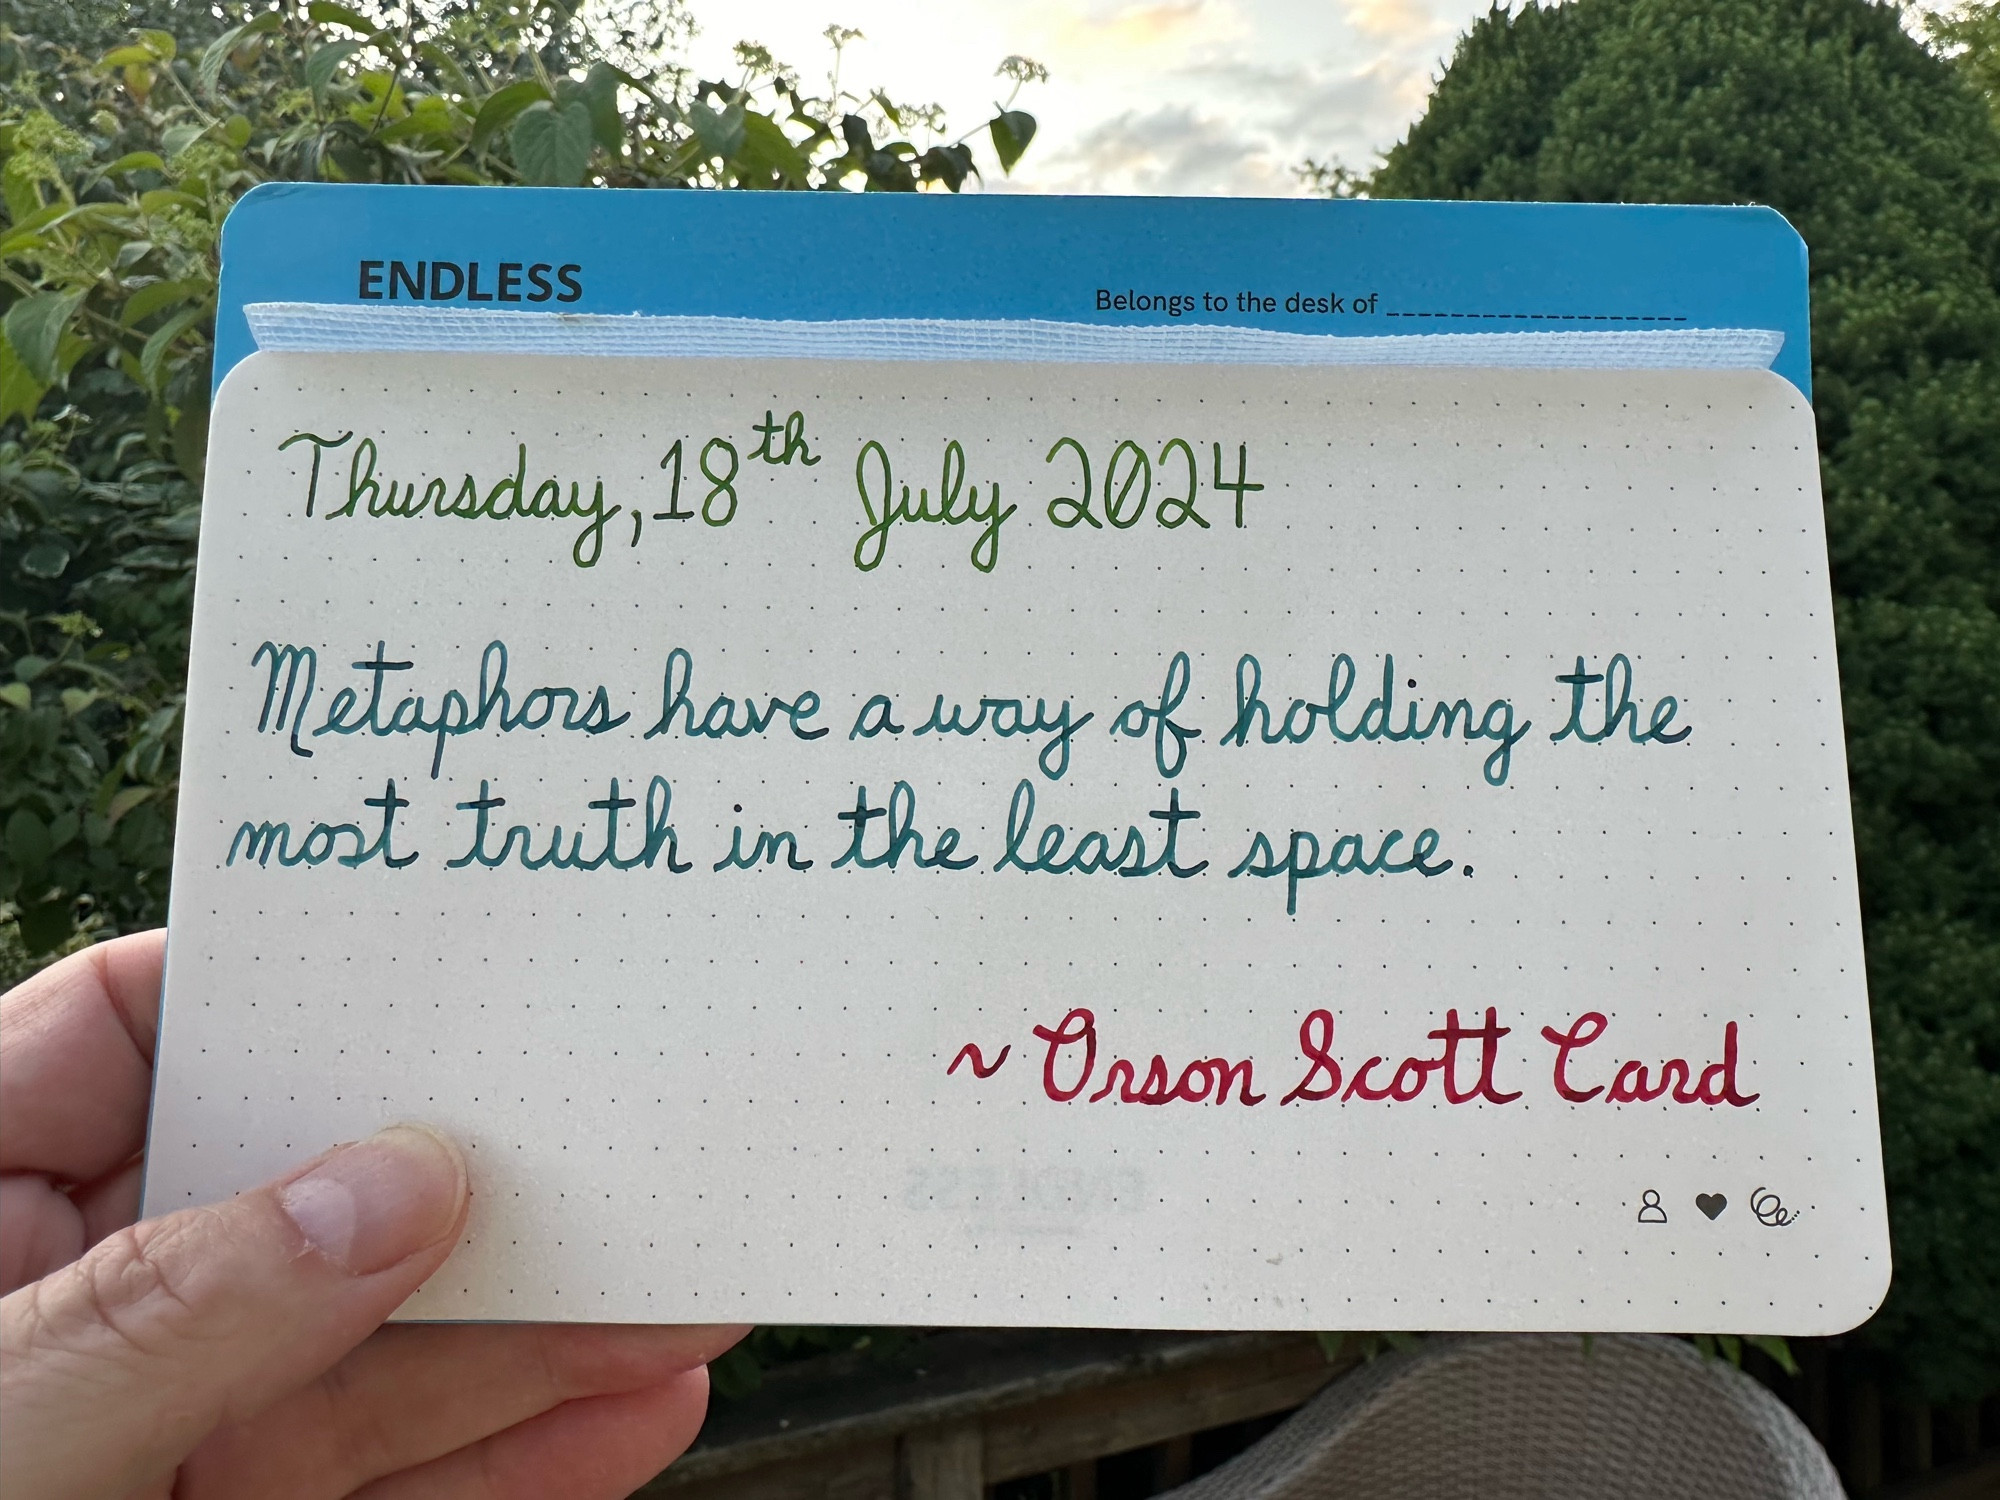 ENDLESS
Belongs to the desk of ____________________
Thursday, 18th July 2024
Metaphors have a way of holding the
most truth in the least space.
~ Orson Scott Card
ENDLESS